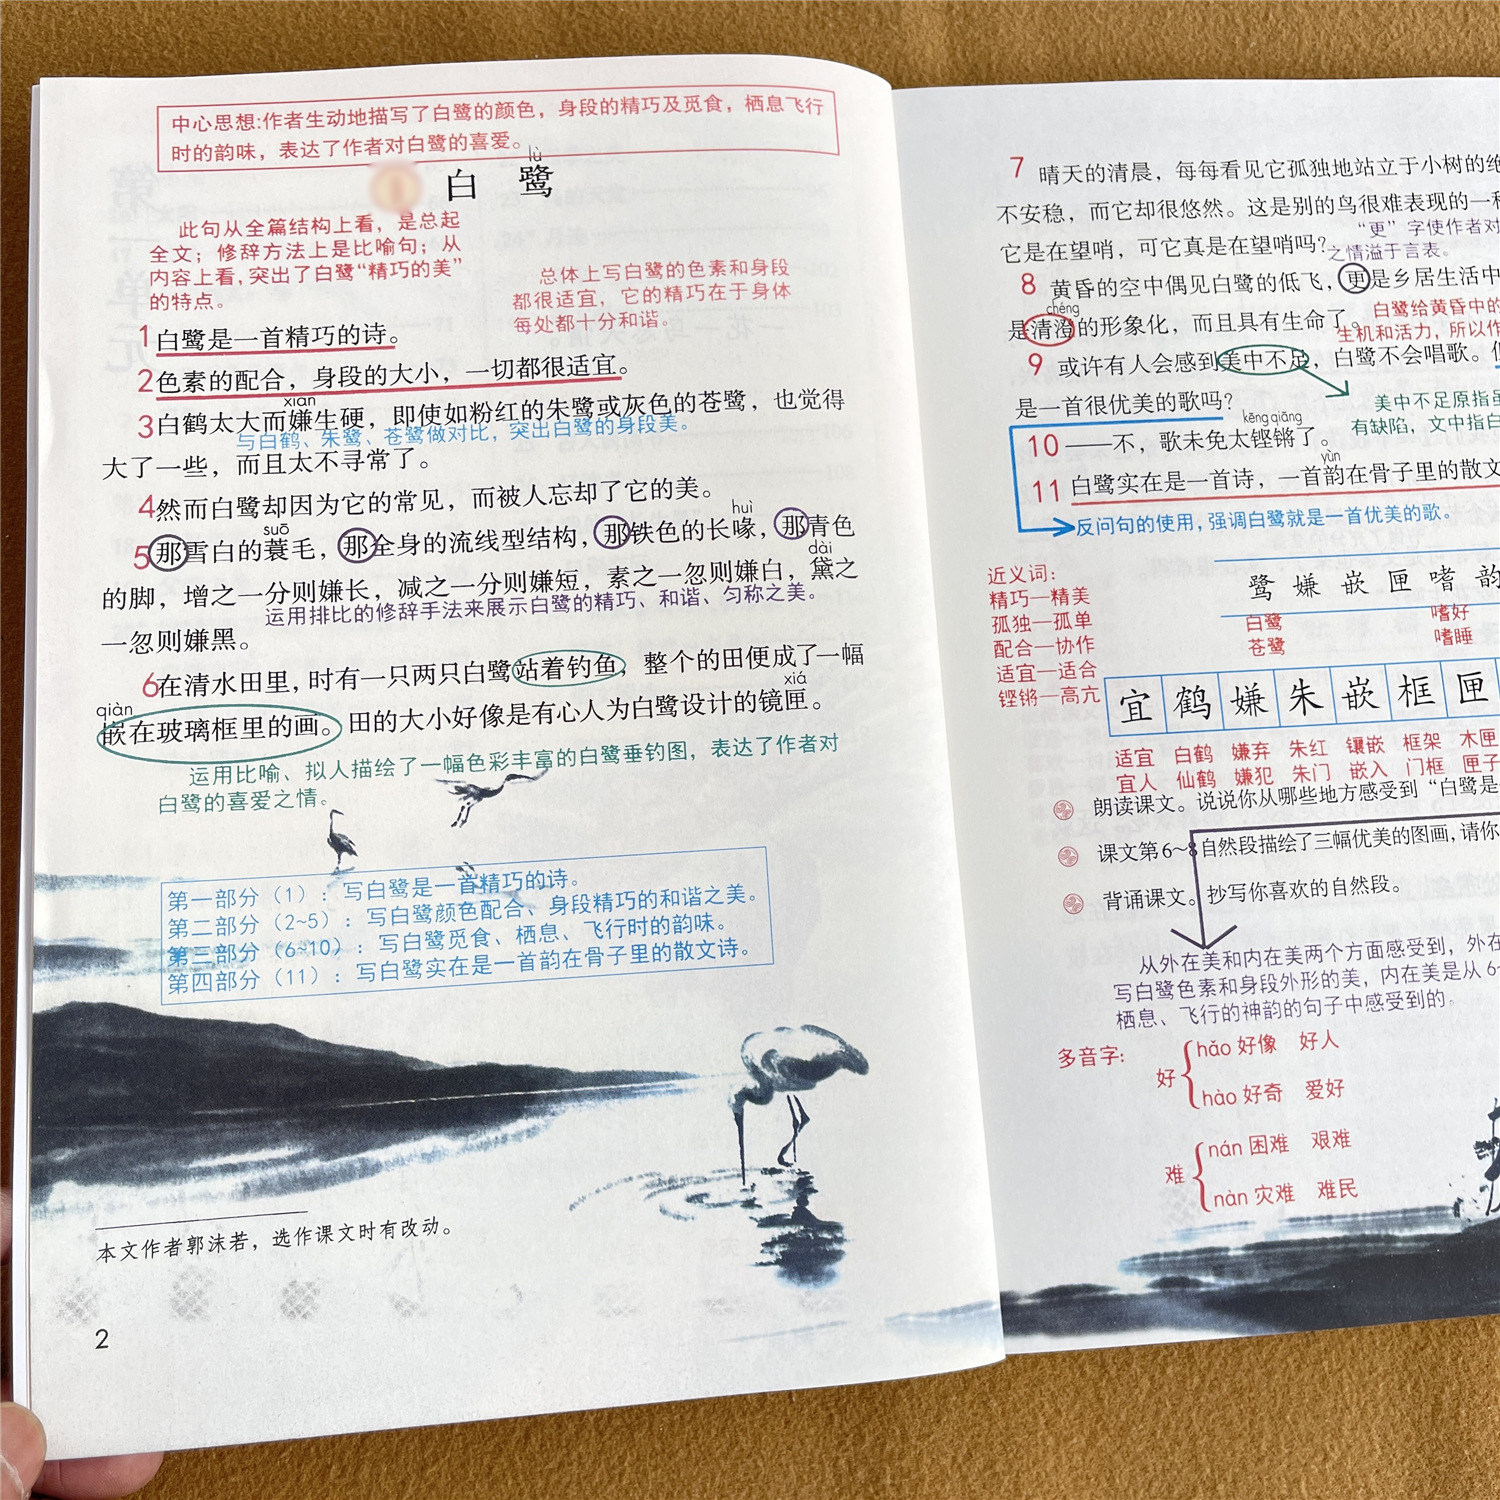 中心思想:作者生动地描写了白鹭的颜色，身段的精巧及觅食，栖息飞行
时的韵味，表达了作者对白鹭的喜爱。
lù
白 鹭
此句从全篇结构上看，是总起
全文；修辞方法上是比喻句；从
内容上看，突出了白鹭“精巧的美”
的特点。
总体上写白鹭的色素和身段
都很适宜，它的精巧在于身体
每处都十分和谐。
1白鹭是一首精巧的诗。
2色素的配合，身段的大小，一切都很适宜。
xián
3白鹤太大而嫌生硬，即使如粉红的朱鹭或灰色的苍鹭，也觉得
与白鹤、朱鹭、苍鹭做对比，突出白鹭的身段美。
大了一些，而且太不寻常了。
4然而白鹭却因为它的常见，而被人忘却了它的美。
suō huì
5那雪白的蓑毛，那全身的流线型结构，那铁色的长喙，那青色
dài
的脚，增之一分则嫌长，减之一分则嫌短，素之一忽则嫌白，黛之
运用排比的修辞手法来展示白鹭的精巧、和谐、匀称之美。
一忽则嫌黑。
6在清水田里，时有一只两只白鹭站着钓鱼，整个的田便成了一幅
qiàn xiá
嵌在玻璃框里的画。田的大小好像是有心人为白鹭设计的镜匣。
运用比喻、拟人描绘了一幅色彩丰富的白鹭垂钓图，表达了作者对
白鹭的喜爱之情。
第一部分（1）：写白鹭是一首精巧的诗。
第二部分（2~5）：写白鹭颜色配合、身段精巧的和谐之美。
第三部分（6~10）：写白鹭觅食、栖息、飞行时的韵味。
第四部分（11）：写白鹭实在是一首韵在骨子里的散文诗。
本文作者郭沫若，选作课文时有改动。
2
7 晴天的清晨，每每看见它孤独地站立于小树的绝
不安稳，而它却很悠然。这是别的鸟很难表现的一
“更”字使作者对
它是在望哨，可它真是在望哨吗?
之情溢于言表。
8 黄昏的空中偶见白鹭的低飞，更是乡居生活中
chéng
是清澄的形象化，而且具有生命了。
白鹭给黄昏中的
生机和活力，所以作
9 或许有人会感到美中不足，白鹭不会唱歌。
是一首很优美的歌吗?
美中不足原指虽
有缺陷，文中指白
kēng qiāng
10 ——不，歌未免太铿锵了。
yùn
11 白鹭实在是一首诗，一首韵在骨子里的散文
反问句的使用，强调白鹭就是一首优美的歌。
近义词:
精巧—精美
孤独—孤单
配合—协作
适宜—适合
铿锵—高亢
鹭 嫌 嵌 匣 嗜 韵
白鹭 嗜好
苍鹭 嗜睡
宜 鹤 嫌 朱 嵌 框 匣
适宜 白鹤 嫌弃 朱红 镶嵌 框架 木匣
宜人 仙鹤 嫌犯 朱门 嵌入 门框 匣子
朗读课文。说说你从哪些地方感受到“白鹭是
课文第6~8自然段描绘了三幅优美的图画，请你
背诵课文。抄写你喜欢的自然段。
从外在美和内在美两个方面感受到，外在
写白鹭色素和身段外形的美，内在美是从6~
栖息、飞行的神韵的句子中感受到的。
多音字:
好 hǎo 好像 好人
hào 好奇 爱好
难 nán 困难 艰难
nàn 灾难 难民